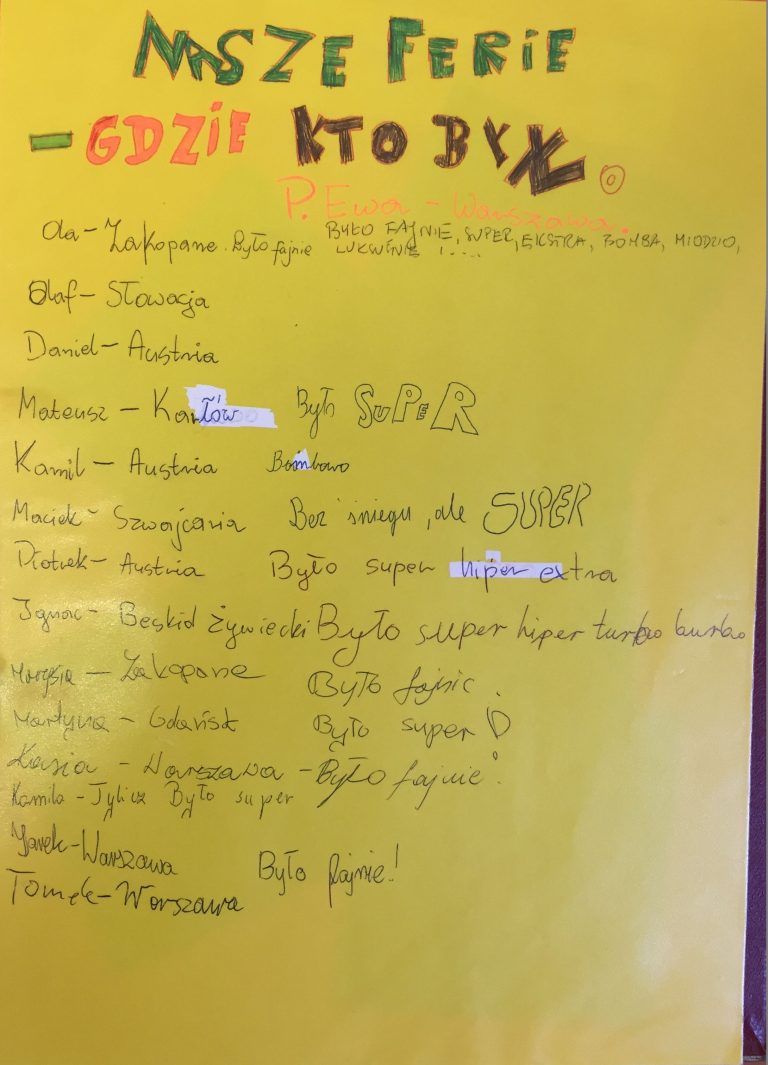 NASZE FERIE
- GDZIE KTO BYŁ.
P. Ewa - Warszawa.
Ola - Zakopane. Było fajnie BYŁO FAJNIE, SUPER, EKSTRA, BOMBA, MIODZIO,
! ....
Olaf - Słowacja
Daniel - Austria
Mateusz - Karłów Było SUPER
Kamil - Austria Bombowo
Maciek - Szwajcaria Bez śniegu, ale SUPER
Piotrek - Austria Było super hiper extra
Ignac - Beskid Żywiecki Było super hiper turbo burbo
Marysia - Zakopane Było fajnie.
Martyna - Gdańsk Było super
Kasia - Warszawa - Było fajnie.
Kamila - Tylicz Było super
Jarek - Warszawa
Było fajnie!
Tomek - Worszawa